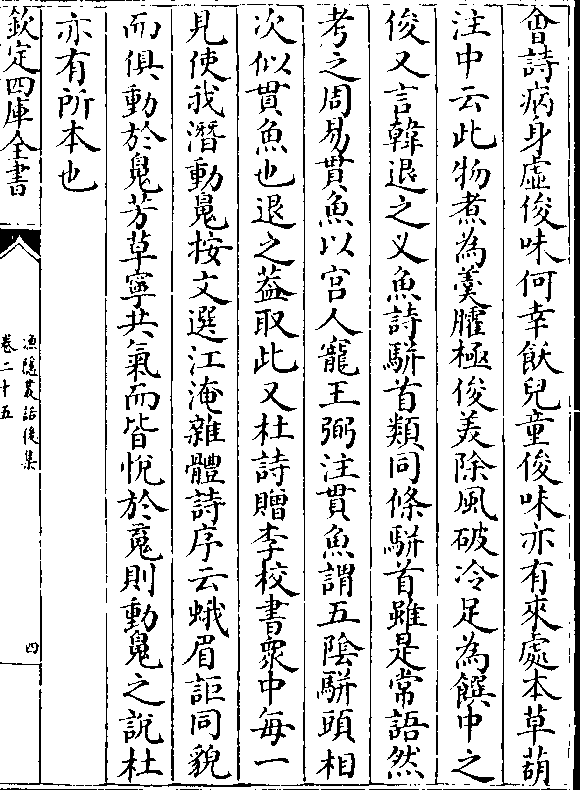 會詩病身虛俊味何幸飫兒童俊味亦有來處本草葫
注中云此物煮為羹臛極俊美除風破冷足為饌中之
俊又言韓退之叉魚詩駢首類同條駢首雖是常語然
考之周易貫魚以宮人寵王弼注貫魚謂五陰駢頭相
次似貫魚也退之葢取此又杜詩贈李校書衆中每一
見使我潛動䰟按文選江淹雜體詩序云蛾眉詎同貌
而俱動於䰟芳草寧共氣而皆悅於䰟則動䰟之說杜
亦有所本也
欽定四庫全書
漁隱叢話後集
卷二十五
四